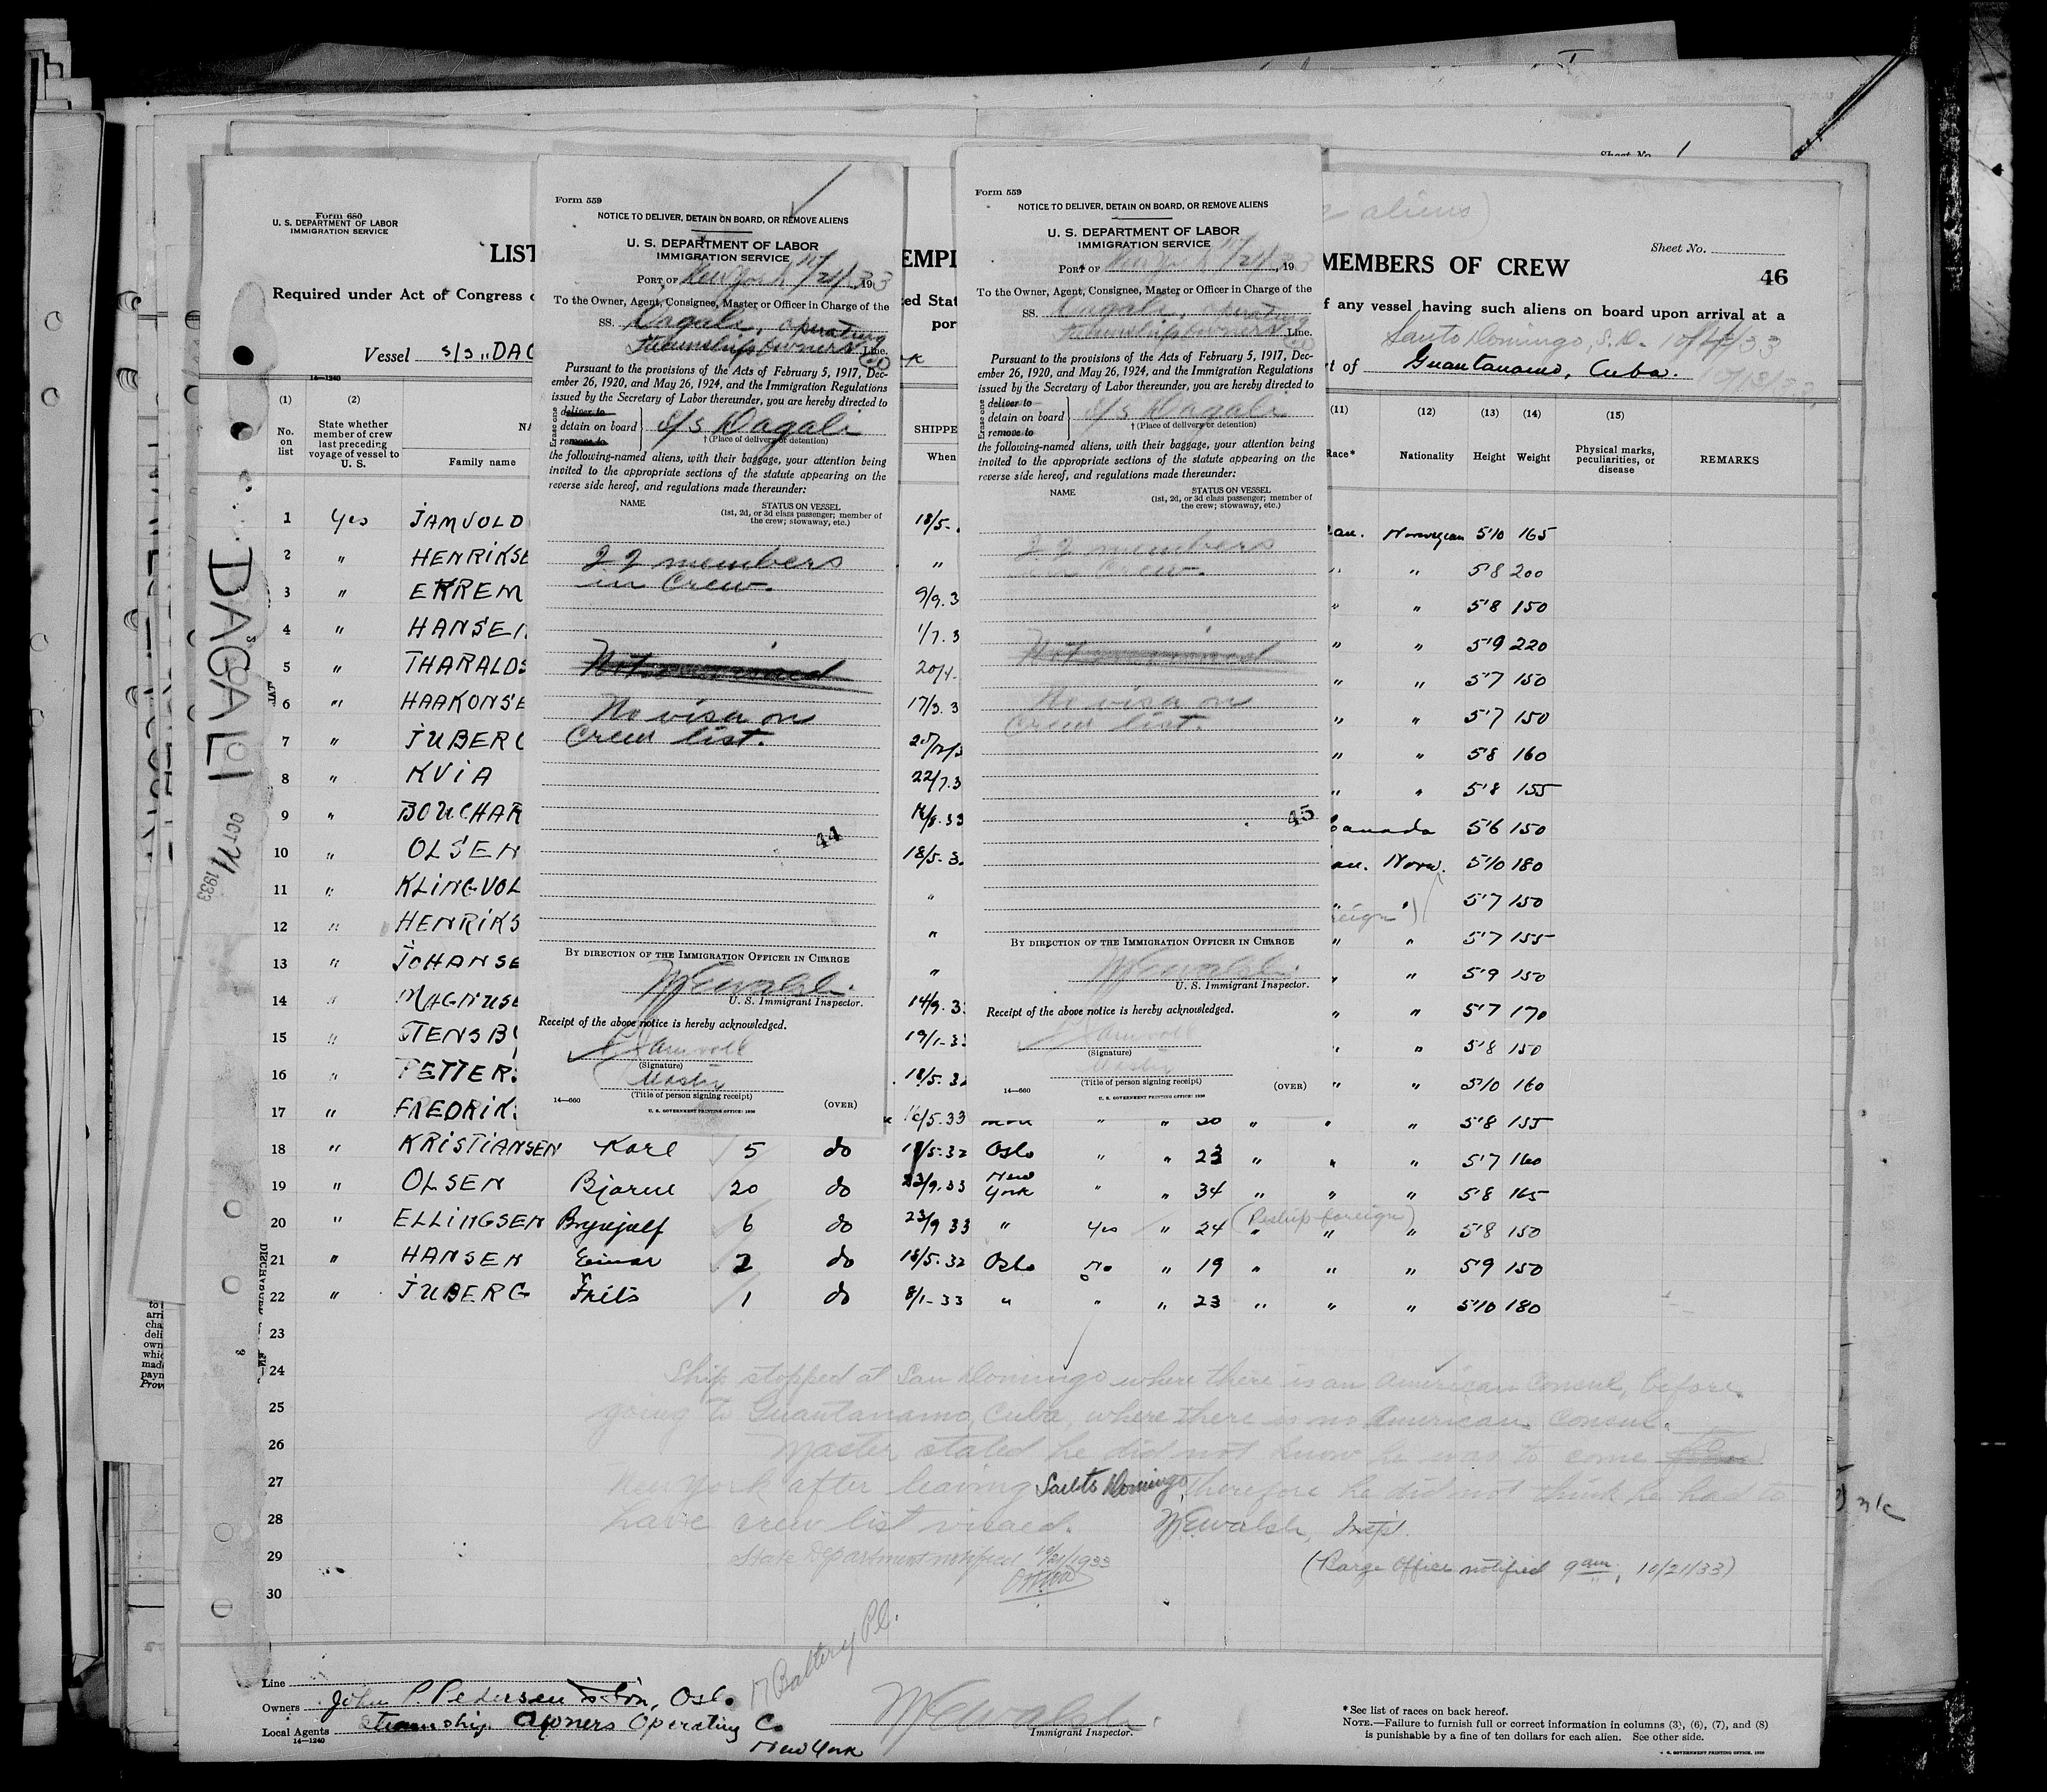 Sheet No. 1
Form 680
U. S. DEPARTMENT OF LABOR
IMMIGRATION SERVICE
LIST
EMPL
MEMBERS OF CREW
Sheet No.
46
aliens)
Required under Act of Congress
ed Stat
f any vessel having such aliens on board upon arrival at a
por
Vessel S/S "DAG
Santo Domingo, S.D.
t of Guantanamo, Cuba.
14—1240
(1) (2) (11) (12) (13) (14) (15)
No. on list
State whether member of crew last preceding voyage of vessel to U. S.
NA
Family name
SHIPPE
When
Race* Nationality Height Weight
Physical marks, peculiarities, or disease
REMARKS
1 Yes JAMVOLD 18/5- an. Norwegian 5'10 165
2 " HENRIKSE " " " 5'8 200
3 " ERREM 9/9.3 " " 5'8 150
4 " HANSEN 1/7.3 " " 5'9 220
5 " THARALDS 20/4- " " 5'7 150
6 " HAAKONSE 17/3.3 " " 5'7 150
7 " JUBERG " " 5'8 160
8 " KVIA 22/7.3 " " 5'8 155
9 " BOUCHAR Canada 5'6 150
10 " OLSEN 18/5-3. an. Norw. 5'10 180
11 " KLINGVOL " " " 5'7 150
eign)
12 " HENRIKS " " " 5'7 155
13 " JOHANSE " " " 5'9 150
14 " MAGNUSE 14/9.3 " " 5'7 170
15 " STENSBY 19/1-33 " " 5'8 150
16 " PETTERS 18/5.32 " " 5'10 160
17 " FREDRIK 16/5.33 " " 20 " " " 5'8 155
18 " KRISTIANSEN Karl 5 do 18/5-32 Oslo " " 23 " " " 5'7 160
19 " OLSEN Bjarne 20 do 23/9.33 New York " " 34 " " " 5'8 165
20 " ELLINGSEN Brynjulf 6 do 23/9 33 " Yes " 24 (Reship foreign) " " " 5'8 150
21 " HANSEN Einar 2 do 18/5-32 Oslo No " 19 " " " 5'9 150
22 " JUBERG Frits 1 do 8/1-33 " " " 23 " " " 5'10 180
23
24
25
26
27
28
29
30
Ship stopped at San Domingo where there is an American Consul, before
going to Guantanamo, Cuba, where there is no American Consul.
Master stated he did not know he was to come
New York after leaving Santo Domingo, therefore he did not think he had to
have crew list visaed. W.E. Walsh, Insp.
State Department notified 10/21/1933
(Barge Office notified 9 am, 10/21/33)
17 Battery Pl.
Line
Owners John P. Pedersen & Son, Oslo
Local Agents Steamship Owners Operating Co
New York
14—1240
W E Walsh
Immigrant Inspector.
* See list of races on back hereof.
NOTE.—Failure to furnish full or correct information in columns (3), (6), (7), and (8)
is punishable by a fine of ten dollars for each alien. See other side.
DAGALI
OCT 21 1933
Form 559
NOTICE TO DELIVER, DETAIN ON BOARD, OR REMOVE ALIENS
U. S. DEPARTMENT OF LABOR
IMMIGRATION SERVICE
PORT OF New York 10/21, 1933
To the Owner, Agent, Consignee, Master or Officer in Charge of the
SS. Dagali, Operating
Steamship Owners Line.
Pursuant to the provisions of the Acts of February 5, 1917, Dec-
ember 26, 1920, and May 26, 1924, and the Immigration Regulations
issued by the Secretary of Labor thereunder, you are hereby directed to
Erase one
deliver to
detain on board S/S Dagali
remove to
† (Place of delivery or detention)
the following-named aliens, with their baggage, your attention being
invited to the appropriate sections of the statute appearing on the
reverse side hereof, and regulations made thereunder:
NAME
STATUS ON VESSEL
(1st, 2d, or 3d class passenger; member of
the crew; stowaway, etc.)
22 members
in Crew.
No visa on
Crew list.
44
BY DIRECTION OF THE IMMIGRATION OFFICER IN CHARGE
W E Walsh
U. S. Immigrant Inspector.
Receipt of the above notice is hereby acknowledged.
Jamvold
(Signature)
Master
(Title of person signing receipt)
14—660
(OVER)
U. S. GOVERNMENT PRINTING OFFICE: 1930
Form 559
NOTICE TO DELIVER, DETAIN ON BOARD, OR REMOVE ALIENS
U. S. DEPARTMENT OF LABOR
IMMIGRATION SERVICE
PORT OF New York 10/21, 1933
To the Owner, Agent, Consignee, Master or Officer in Charge of the
SS. Dagali, Operating
Steamship Owners Line.
Pursuant to the provisions of the Acts of February 5, 1917, Dec-
ember 26, 1920, and May 26, 1924, and the Immigration Regulations
issued by the Secretary of Labor thereunder, you are hereby directed to
Erase one
deliver to
detain on board S/S Dagali
remove to
† (Place of delivery or detention)
the following-named aliens, with their baggage, your attention being
invited to the appropriate sections of the statute appearing on the
reverse side hereof, and regulations made thereunder:
NAME
STATUS ON VESSEL
(1st, 2d, or 3d class passenger; member of
the crew; stowaway, etc.)
22 members
in Crew.
No visa on
Crew list.
45
BY DIRECTION OF THE IMMIGRATION OFFICER IN CHARGE
W E Walsh
U. S. Immigrant Inspector.
Receipt of the above notice is hereby acknowledged.
Jamvold
(Signature)
Master
(Title of person signing receipt)
14—660
(OVER)
U. S. GOVERNMENT PRINTING OFFICE: 1930